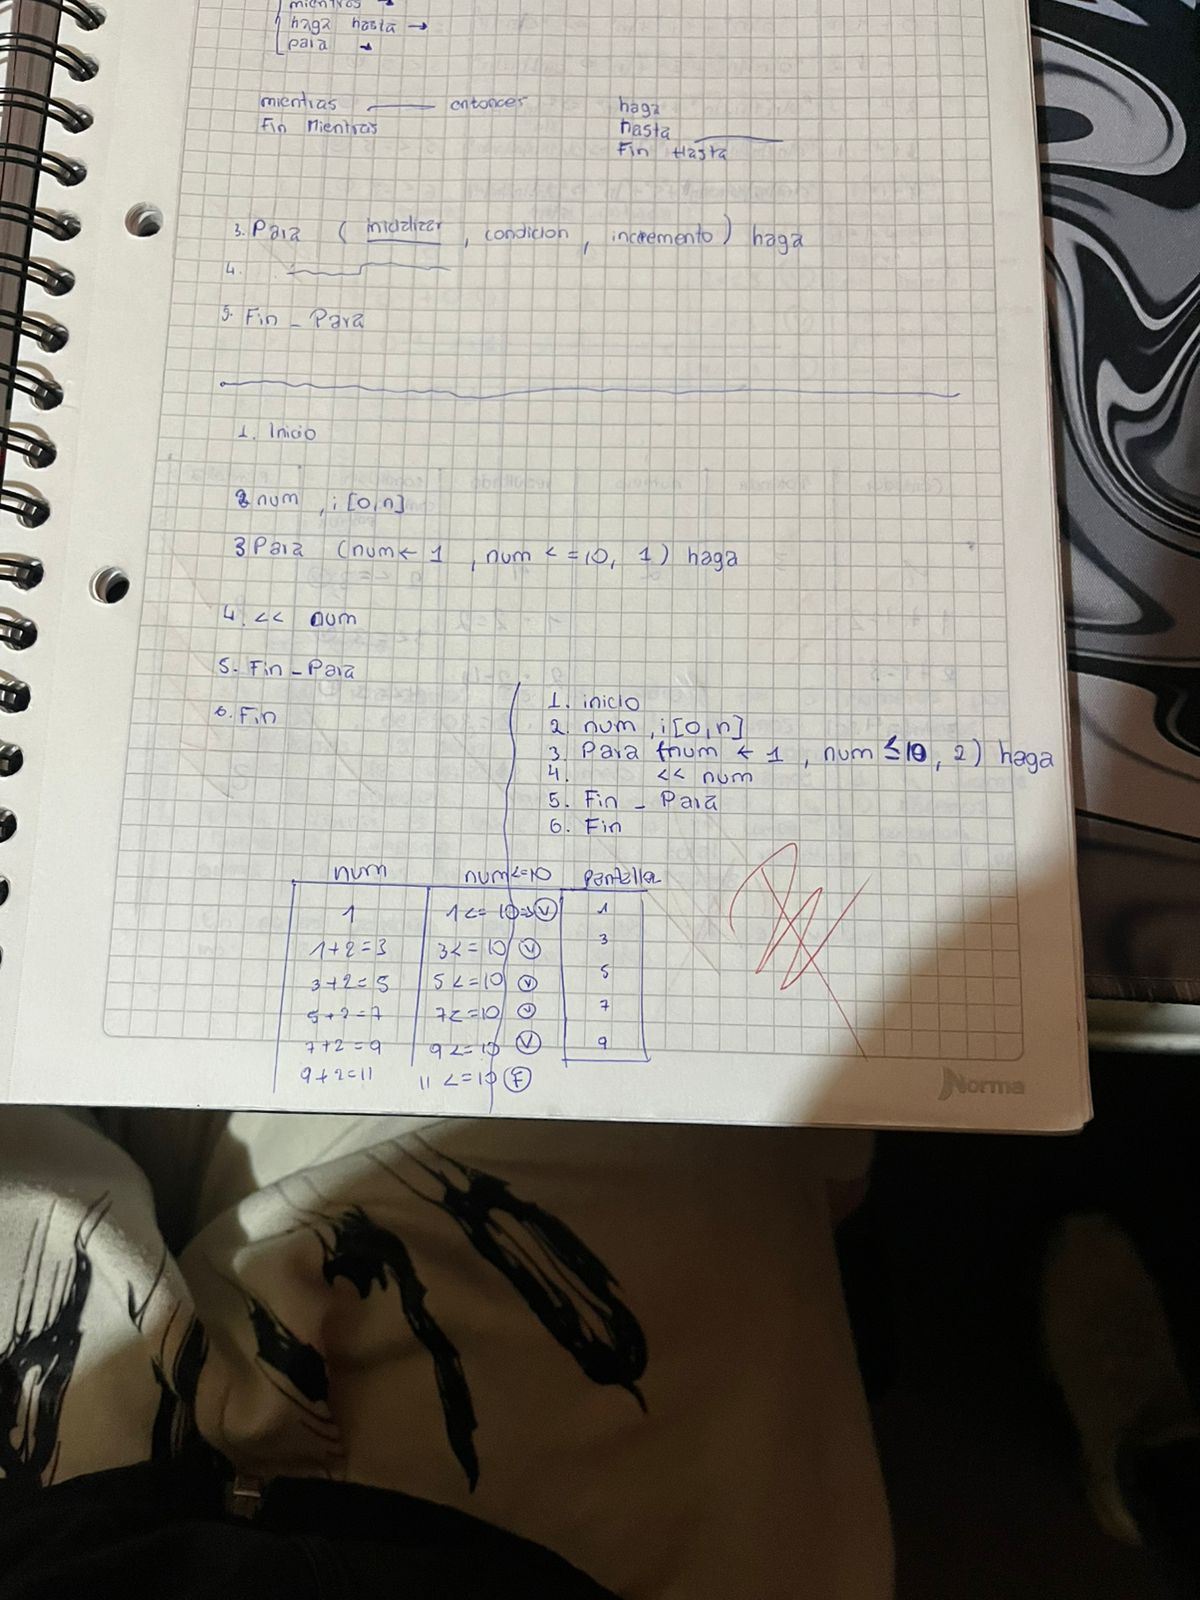 mientras →
haga hasta →
para →
mientras ____ entonces
Fin Mientras
haga
hasta ____
Fin Hasta
3. Para ( inicializar , condicion , incremento ) haga
4.
5. Fin - Para
1. Inicio
2 num , i [0,n]
3 Para (num ← 1 , num < = 10, 1) haga
4. << num
5. Fin - Para
6. Fin
1. inicio
2. num , i [0,n]
3. Para (num ← 1 , num ≤ 10 , 2) haga
4. << num
5. Fin - Para
6. Fin
num num<=10 Pantalla
1 1<= 10⇒ V 1
1+2=3 3<=10 V 3
3+2=5 5<=10 V 5
5+2=7 7<=10 V 7
7+2=9 9<=10 V 9
9+2=11 11 <=10 F
Norma